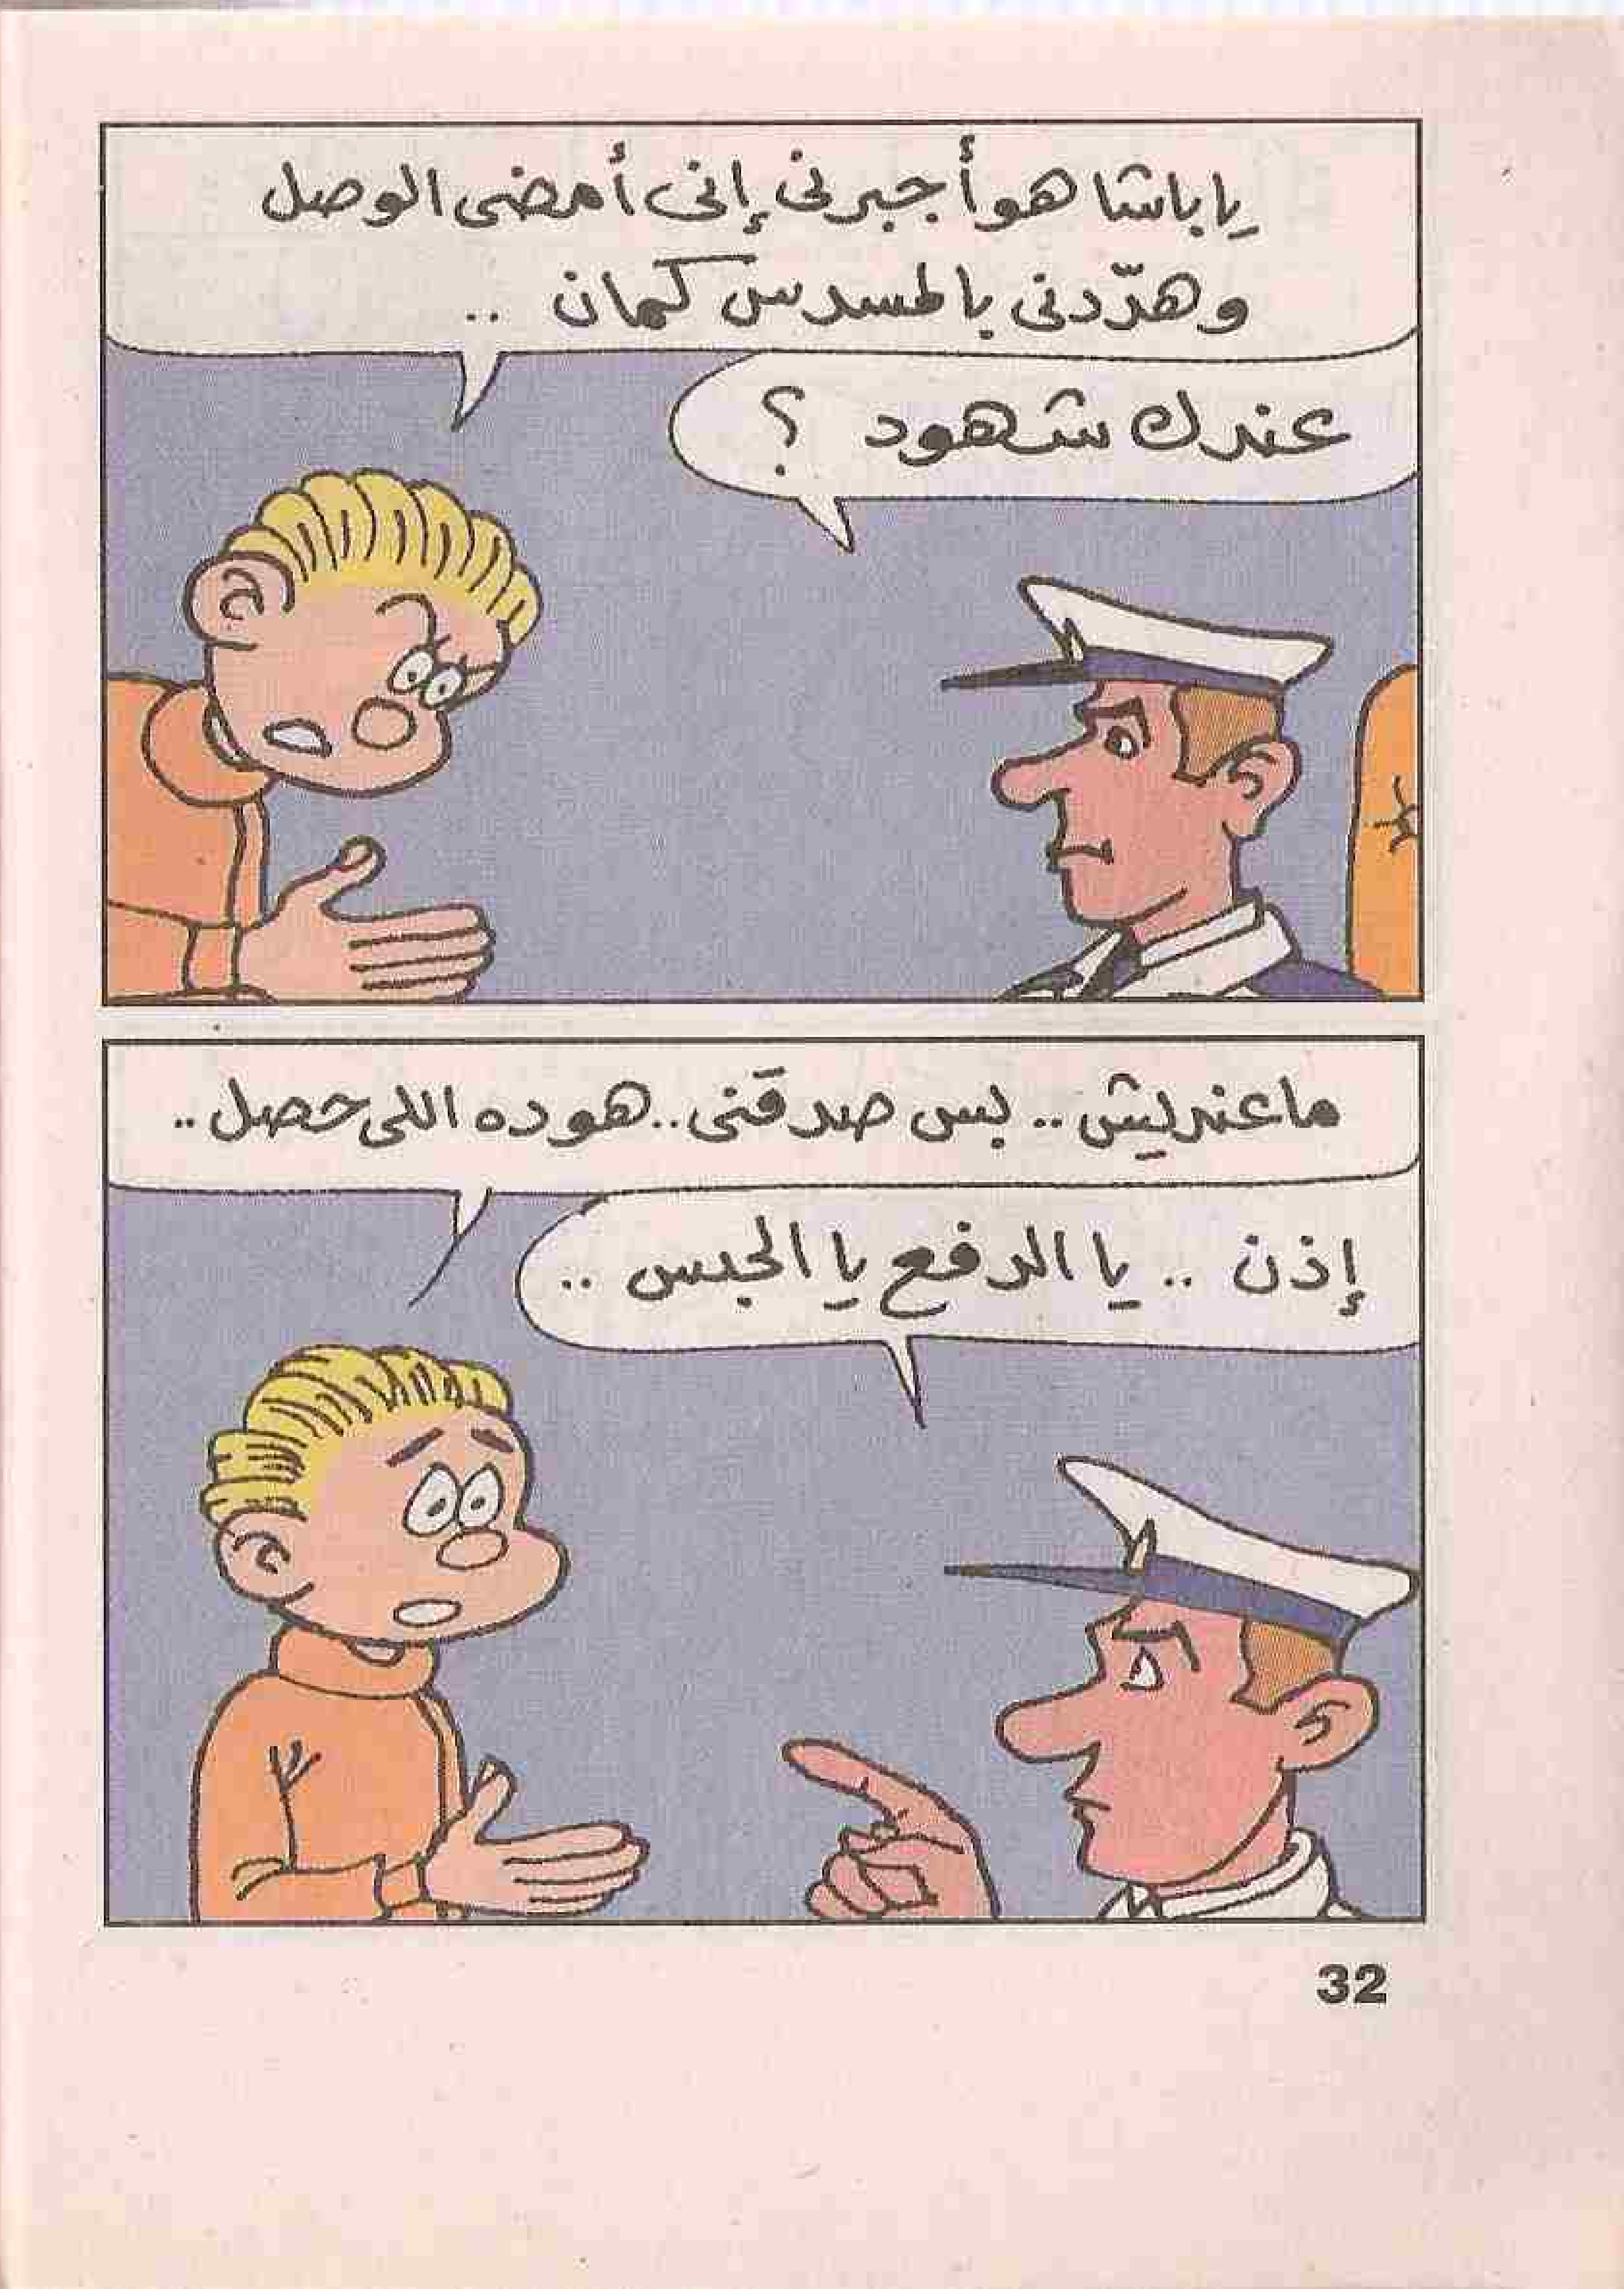 يا باشا هو أجبرنى إنى أمضى الوصل
وهدّدنى بالمسدس كمان ..
عندك شهود ؟
ما عنديش .. بس صدقنى .. هو ده اللى حصل ..
إذن .. يا الدفع يا الحبس ..
32